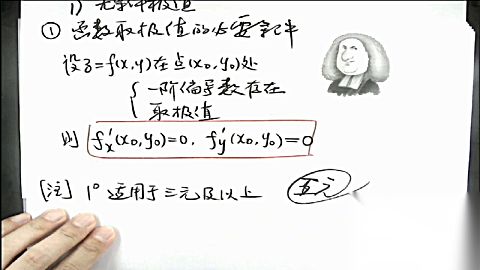 1) 无条件极值
① 函数取极值的必要条件
设z=f(x,y)在点(x₀,y₀)处
{一阶偏导数存在
取极值
则 f'ₓ(x₀,y₀)=0, f'ᵧ(x₀,y₀)=0
[注] 1° 适用于三元及以上 五元